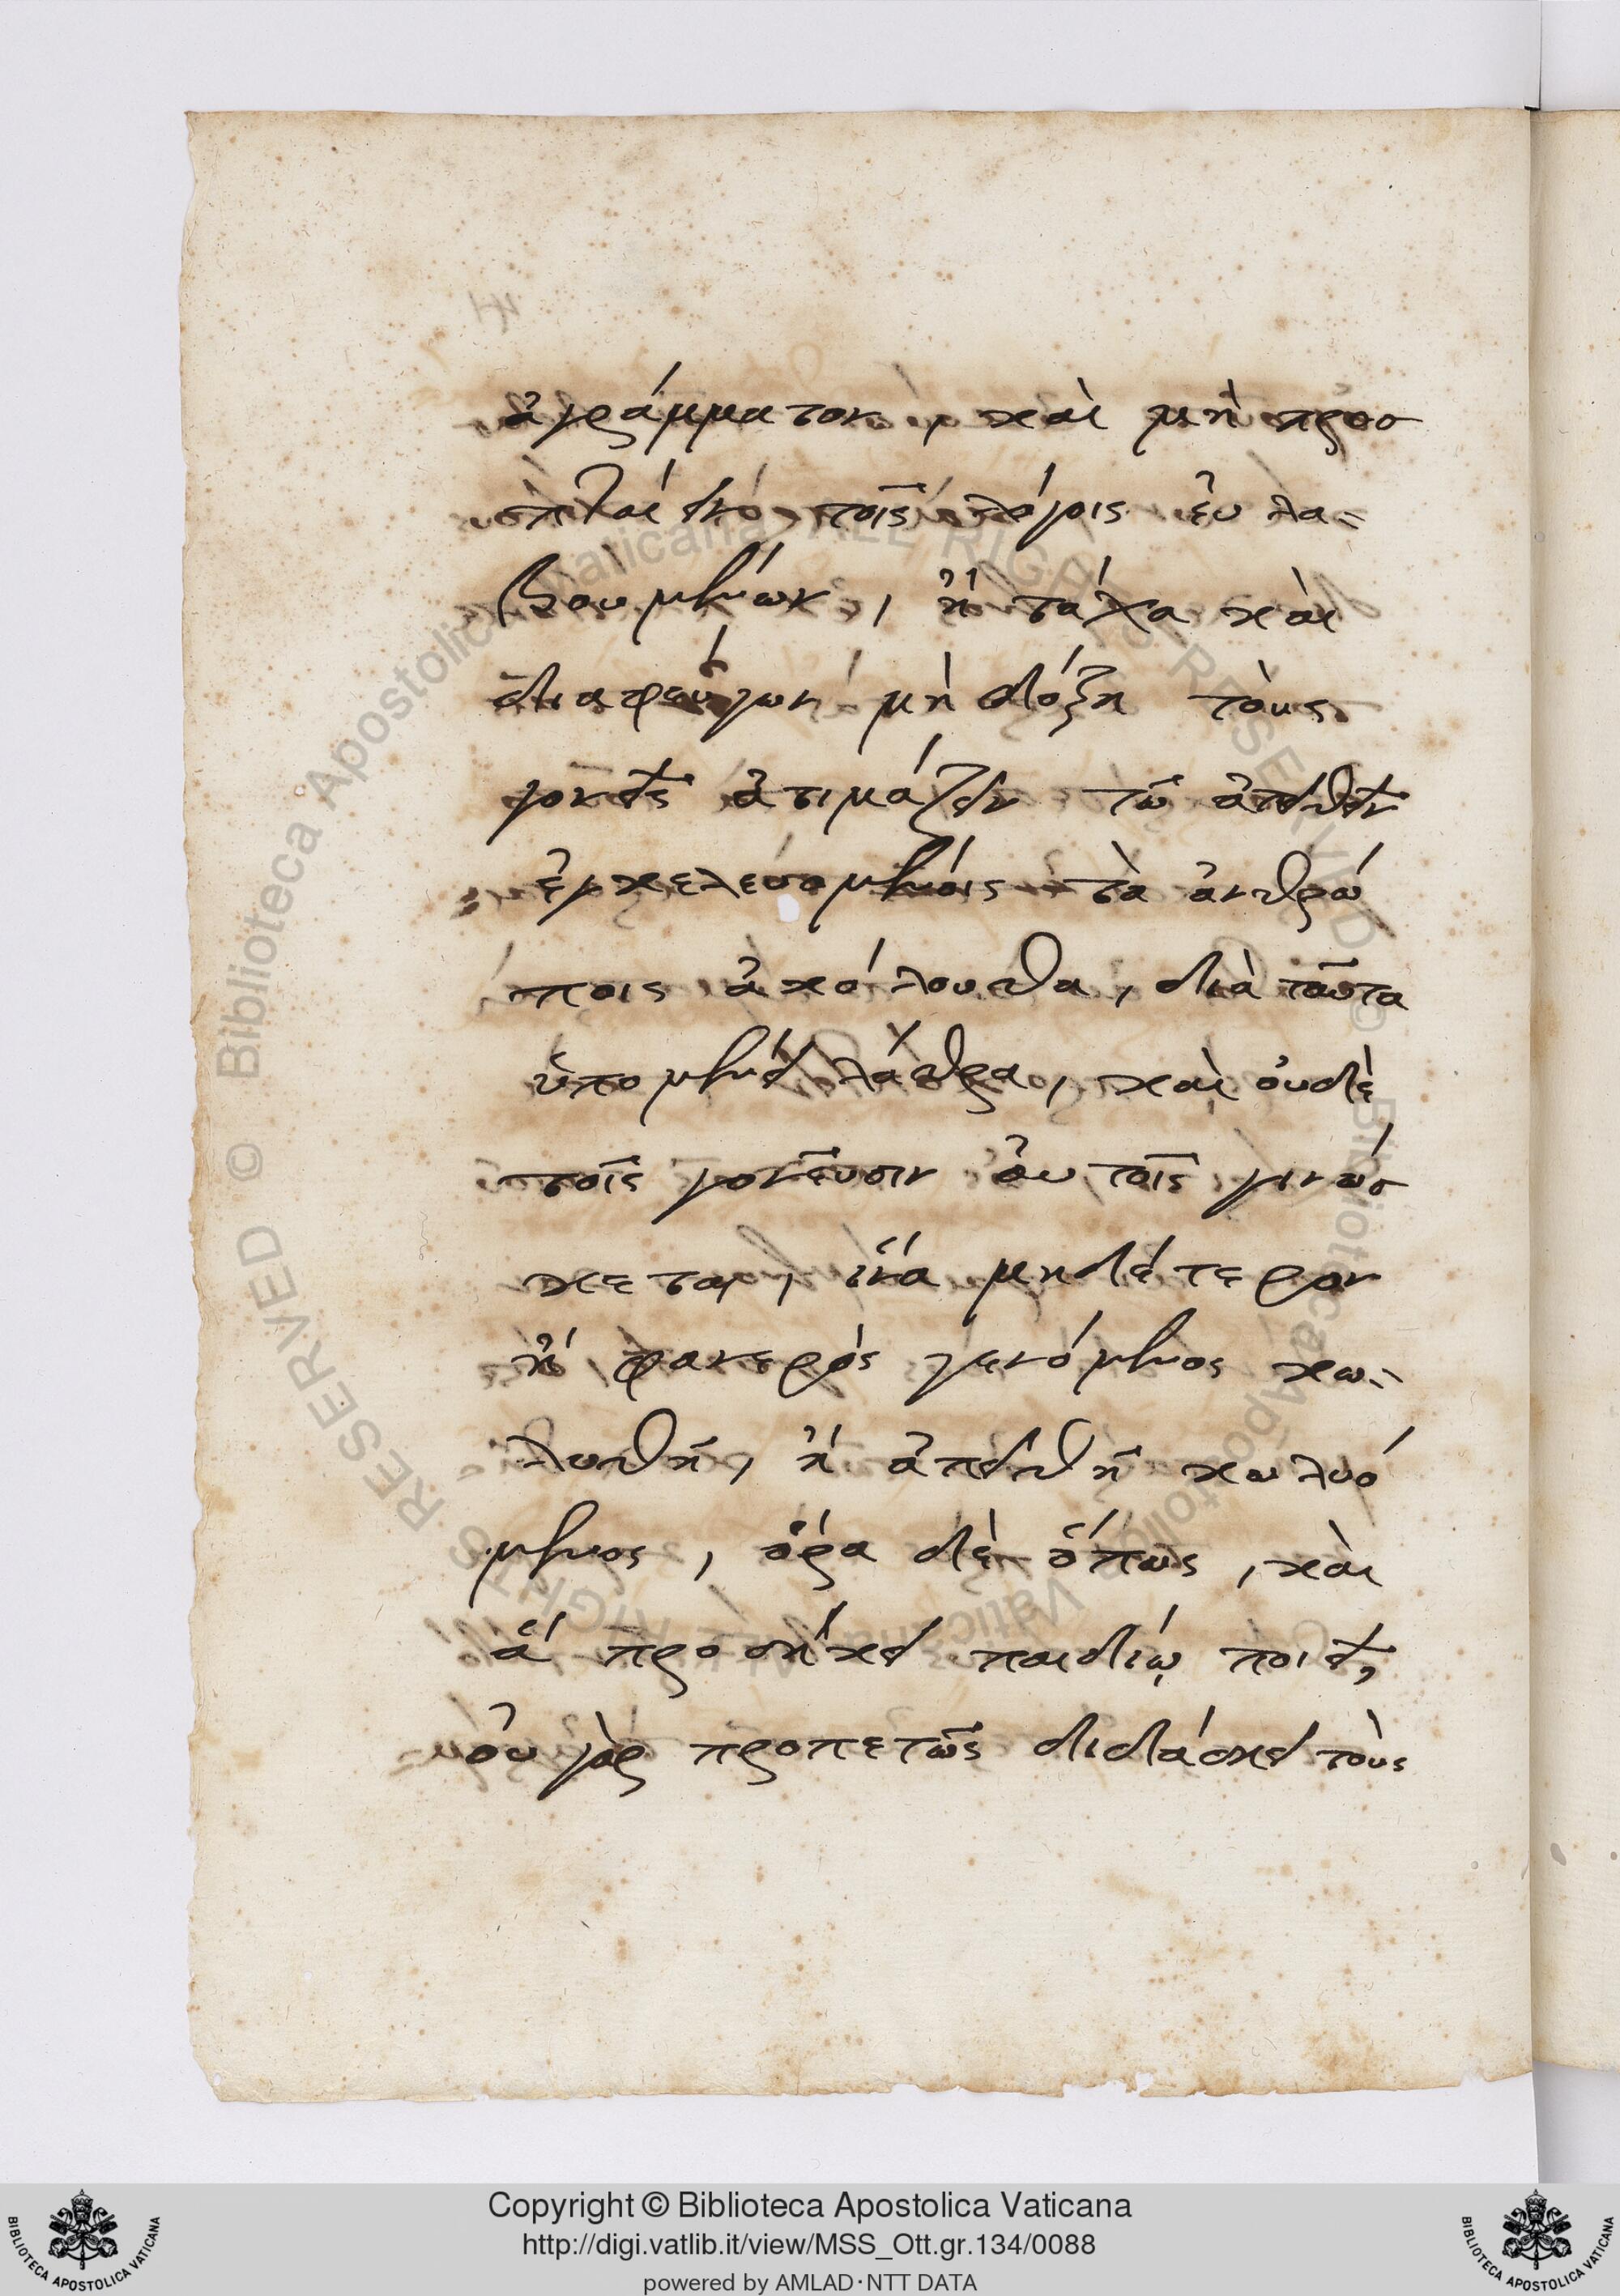 ἀγράμματον, καὶ μὴ προσ
πλαίενό τοῖς λόγοις ἐυ λα-
βουμένων, ἢ τάχα καὶ
διαφεύγων μὴ δόξη τοὺς
γονεῖς ἀτιμάζειν τῶ ἀπειθεῖν
ἐγκελευομένοις τὰ ἀνθρώ
ποις ἀκόλουθα, διὰ ταῦτα
ὑπομένει λάθρα, καὶ ὀυδὲ
τοῖς γονεῦσιν ἀυτοῖς γινώσ
κεται, ἵνα μηδέτερον
ἢ φανερὸς γενόμενος κω-
λυθῆ, ἢ ἀπειθῆ κωλυό
μενος, ὅρα δὲ ὅπως, καὶ
ἃ προσήκει παιδίῳ ποιεῖ,
ὀυ γὰρ προπετῶς διδάσκει τοὺς
Copyright © Biblioteca Apostolica Vaticana
http://digi.vatlib.it/view/MSS_Ott.gr.134/0088
powered by AMLAD·NTT DATA
BIBLIOTECA APOSTOLICA VATICANA
BIBLIOTECA APOSTOLICA VATICANA
© Biblioteca Apostolica Vaticana ALL RIGHTS RESERVED
© Biblioteca Apostolica Vaticana ALL RIGHTS RESERVED